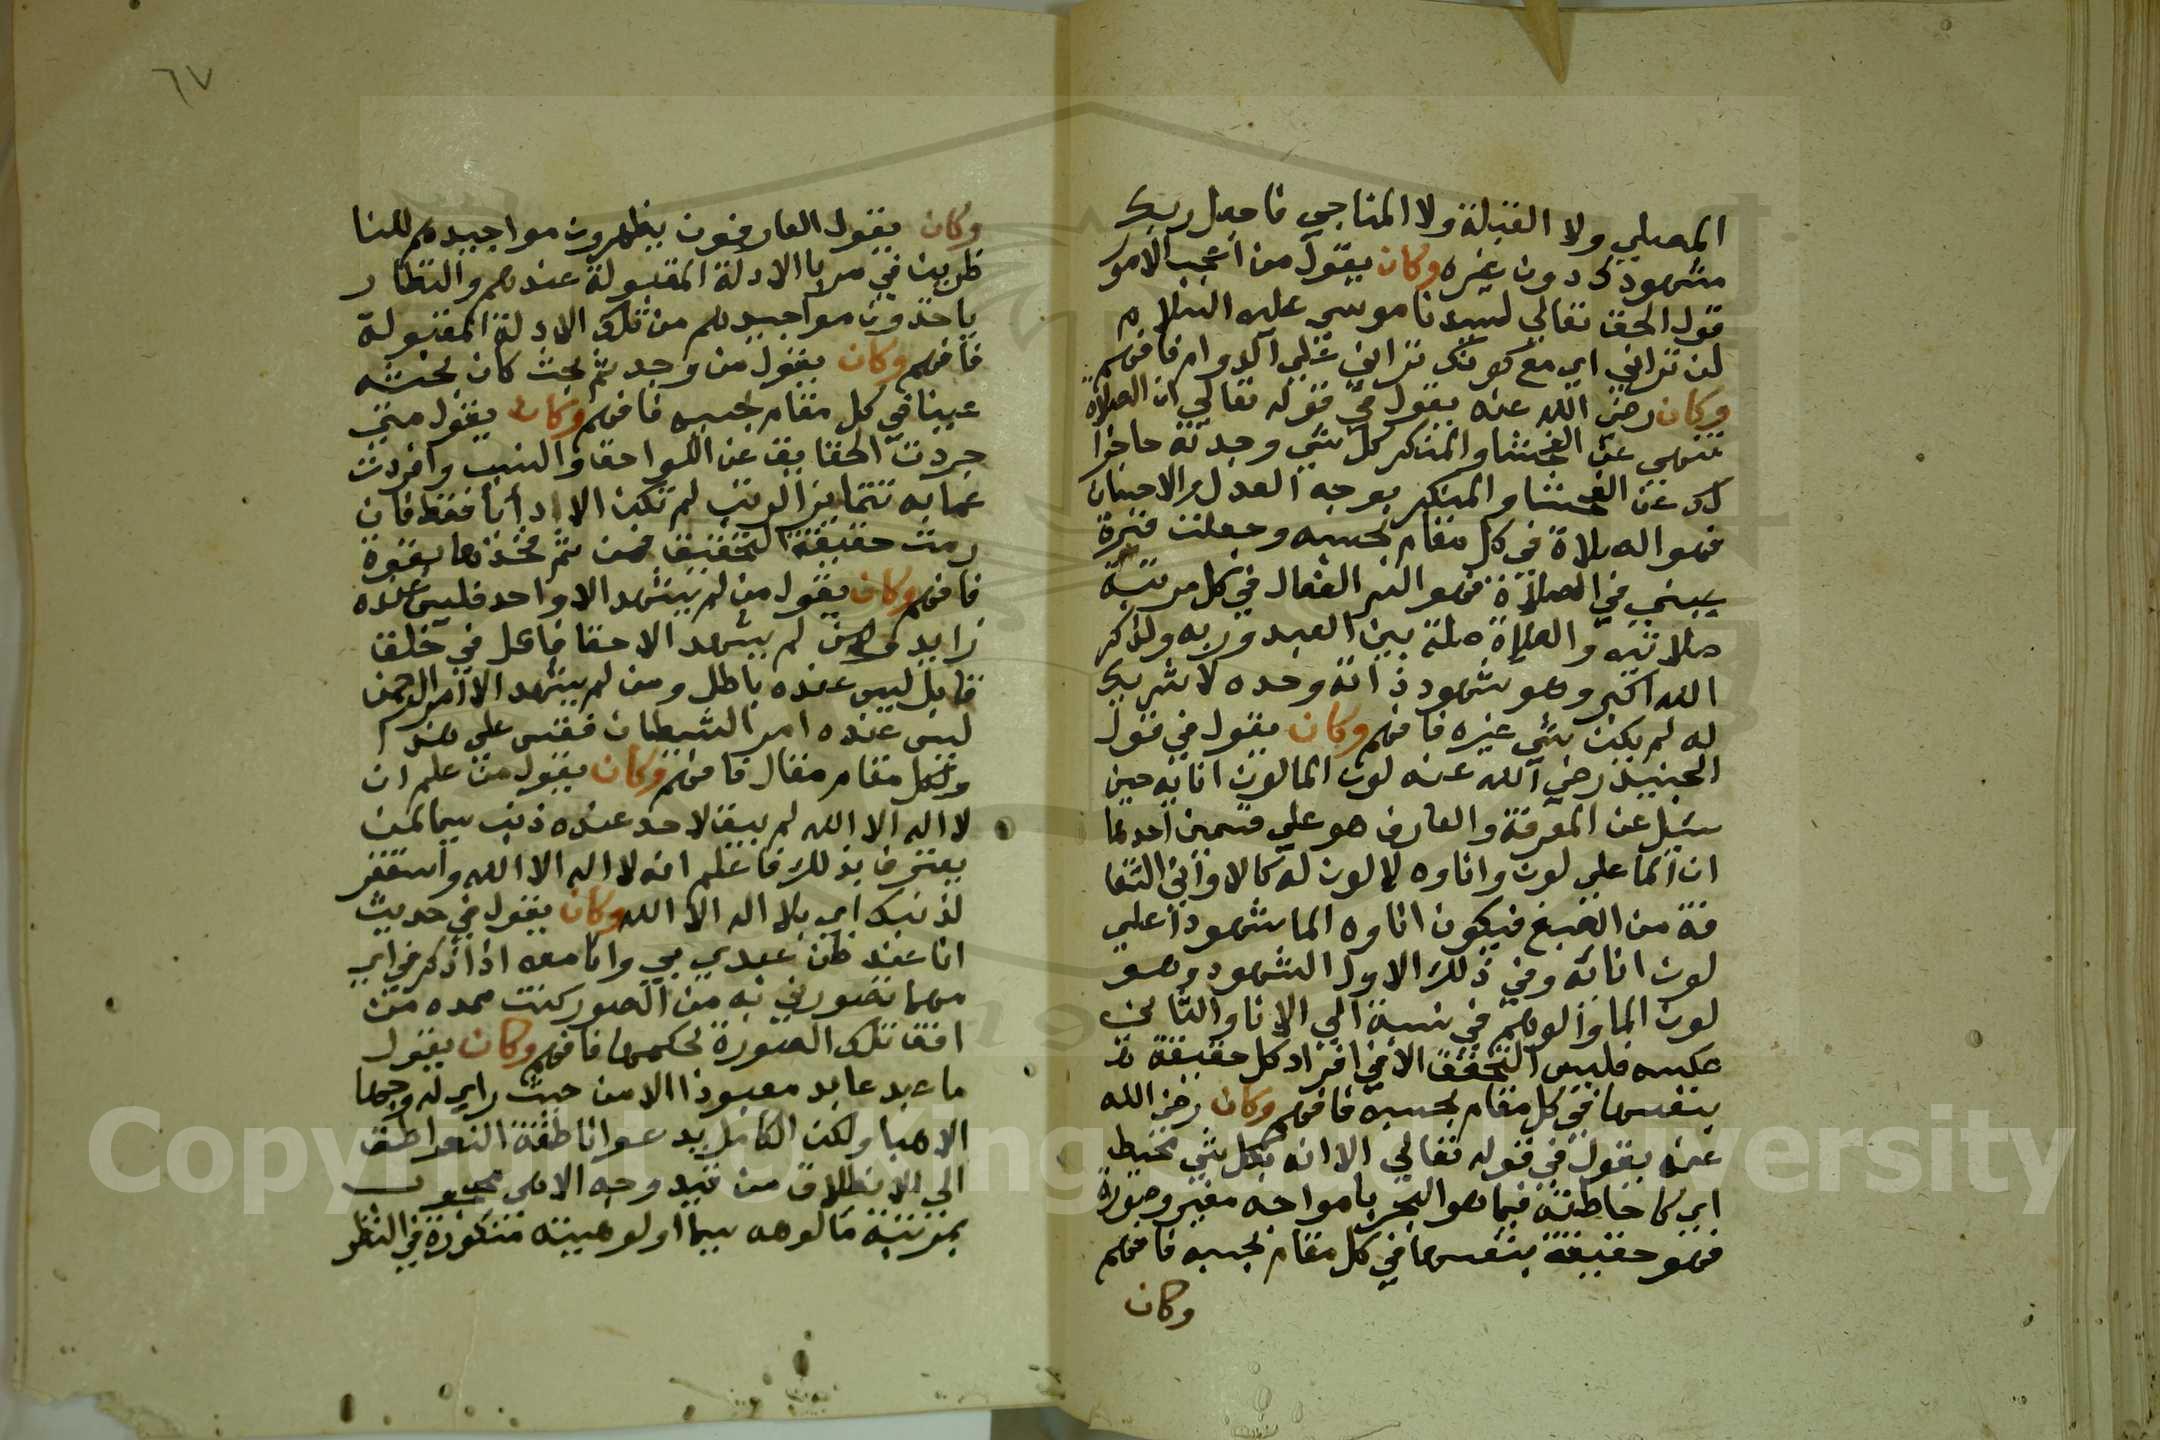 المصلي ولا القبلة ولا المناجي فاجعل ربك
مشهودك دون غيره وكان يقول من اعجب الامور
قول الحق تعالي لسيدنا موسي عليه السلام
لن تراني اي مع كونك تراني علي الدوام فافهم
وكان رضي الله عنه يقول في قوله تعالي ان الصلاة
تنهي عن الفحشا والمنكر كل شي وجدته حاجزا
لك عن الفحشا والمنكر بوجه العدل والاحسان
فهو اله صلاة في كل مقام بحسبه وجعلت قرة
عيني في الصلاة فهو السر الفعال في كل مرتبة
صلاتيه والصلاة صلة بين العبد وربه ولذكر
الله اكبر وهو شهود ذاته وحده لا شريك
له لم يكن شي غيره فافهم وكان يقول في قول
الجنيد رضي الله عنه لون الما لون انايه حين
سيل عن المعرفة والعارف هو علي قسمين احدهما
ان الما علي لون واناوه لا لون له كالاواني الشفا
فة من الصبغ فيكون اناوه الما مشهودا علي
لون انائه وفي ذلك الاول الشهود وهو
لون الما والوهم في نسبة الي الانا والثاني
عكسه فليس التحقق الا في افراد كل حقيقة
بنفسها في كل مقام بحسبه فافهم وكان رضي الله
عنه يقول في قوله تعالي الا انه بكل شي محيط
اي كاحاطته فيما هو البحر بامواجه معني وصورة
فهو حقيقة بنفسها في كل مقام بحسبه فافهم
وكان
٦٧
وكان يقول العارفون يظهرون مواجيدهم للنا
ظرين في مرايا الادلة المقبولة عندهم والنظار
ياخذون مواجيدهم من تلك الادلة المقبولة
فافهم وكان يقول من وجد ثم بحث كان بحثه
عبثا في كل مقام بحسبه فافهم وكان يقول متي
جردت الحقايق عن اللواحق والنسب وافردت
عما به تتمايز الرتب لم تكن الا ذاتا فقط فان
رمت حقيقة التحقيق فمن ثم فخذها بقوة
فافهم وكان يقول من لم يشهد الا واحد فليس عنده
زايد ومن لم يشهد الا حقا فاعل في خلق
قابل ليس عنده باطل ومن لم يشهد الا امر الرحمن
ليس عنده امر الشيطان فقس علي هذا
ولكل مقام مقال فافهم وكان يقول من علم ان
لا اله الا الله لم يبق لاحد عنده ذنب سيما لمن
يعترف بذلك فاعلم انه لا اله الا الله واستغفر
لذنبك اي بلا اله الا الله وكان يقول في حديث
انا عند ظن عبدي بي وانا معه اذا ذكرني اي
مهما تصورني به من الصور كنت ممده من
افق تلك الصورة بحكمها فافهم وكان يقول
ما عبد عابد معبودا الا من حيث راي له وجها
الاهيا ولكن الكامل يدعو اناطقة النواطق
الي الانطلاق من قيد وجه الاهي محجوب
بمرتبة مالوهه سيما اولوهيته متكورة في النظر
Copyright © King Saud University